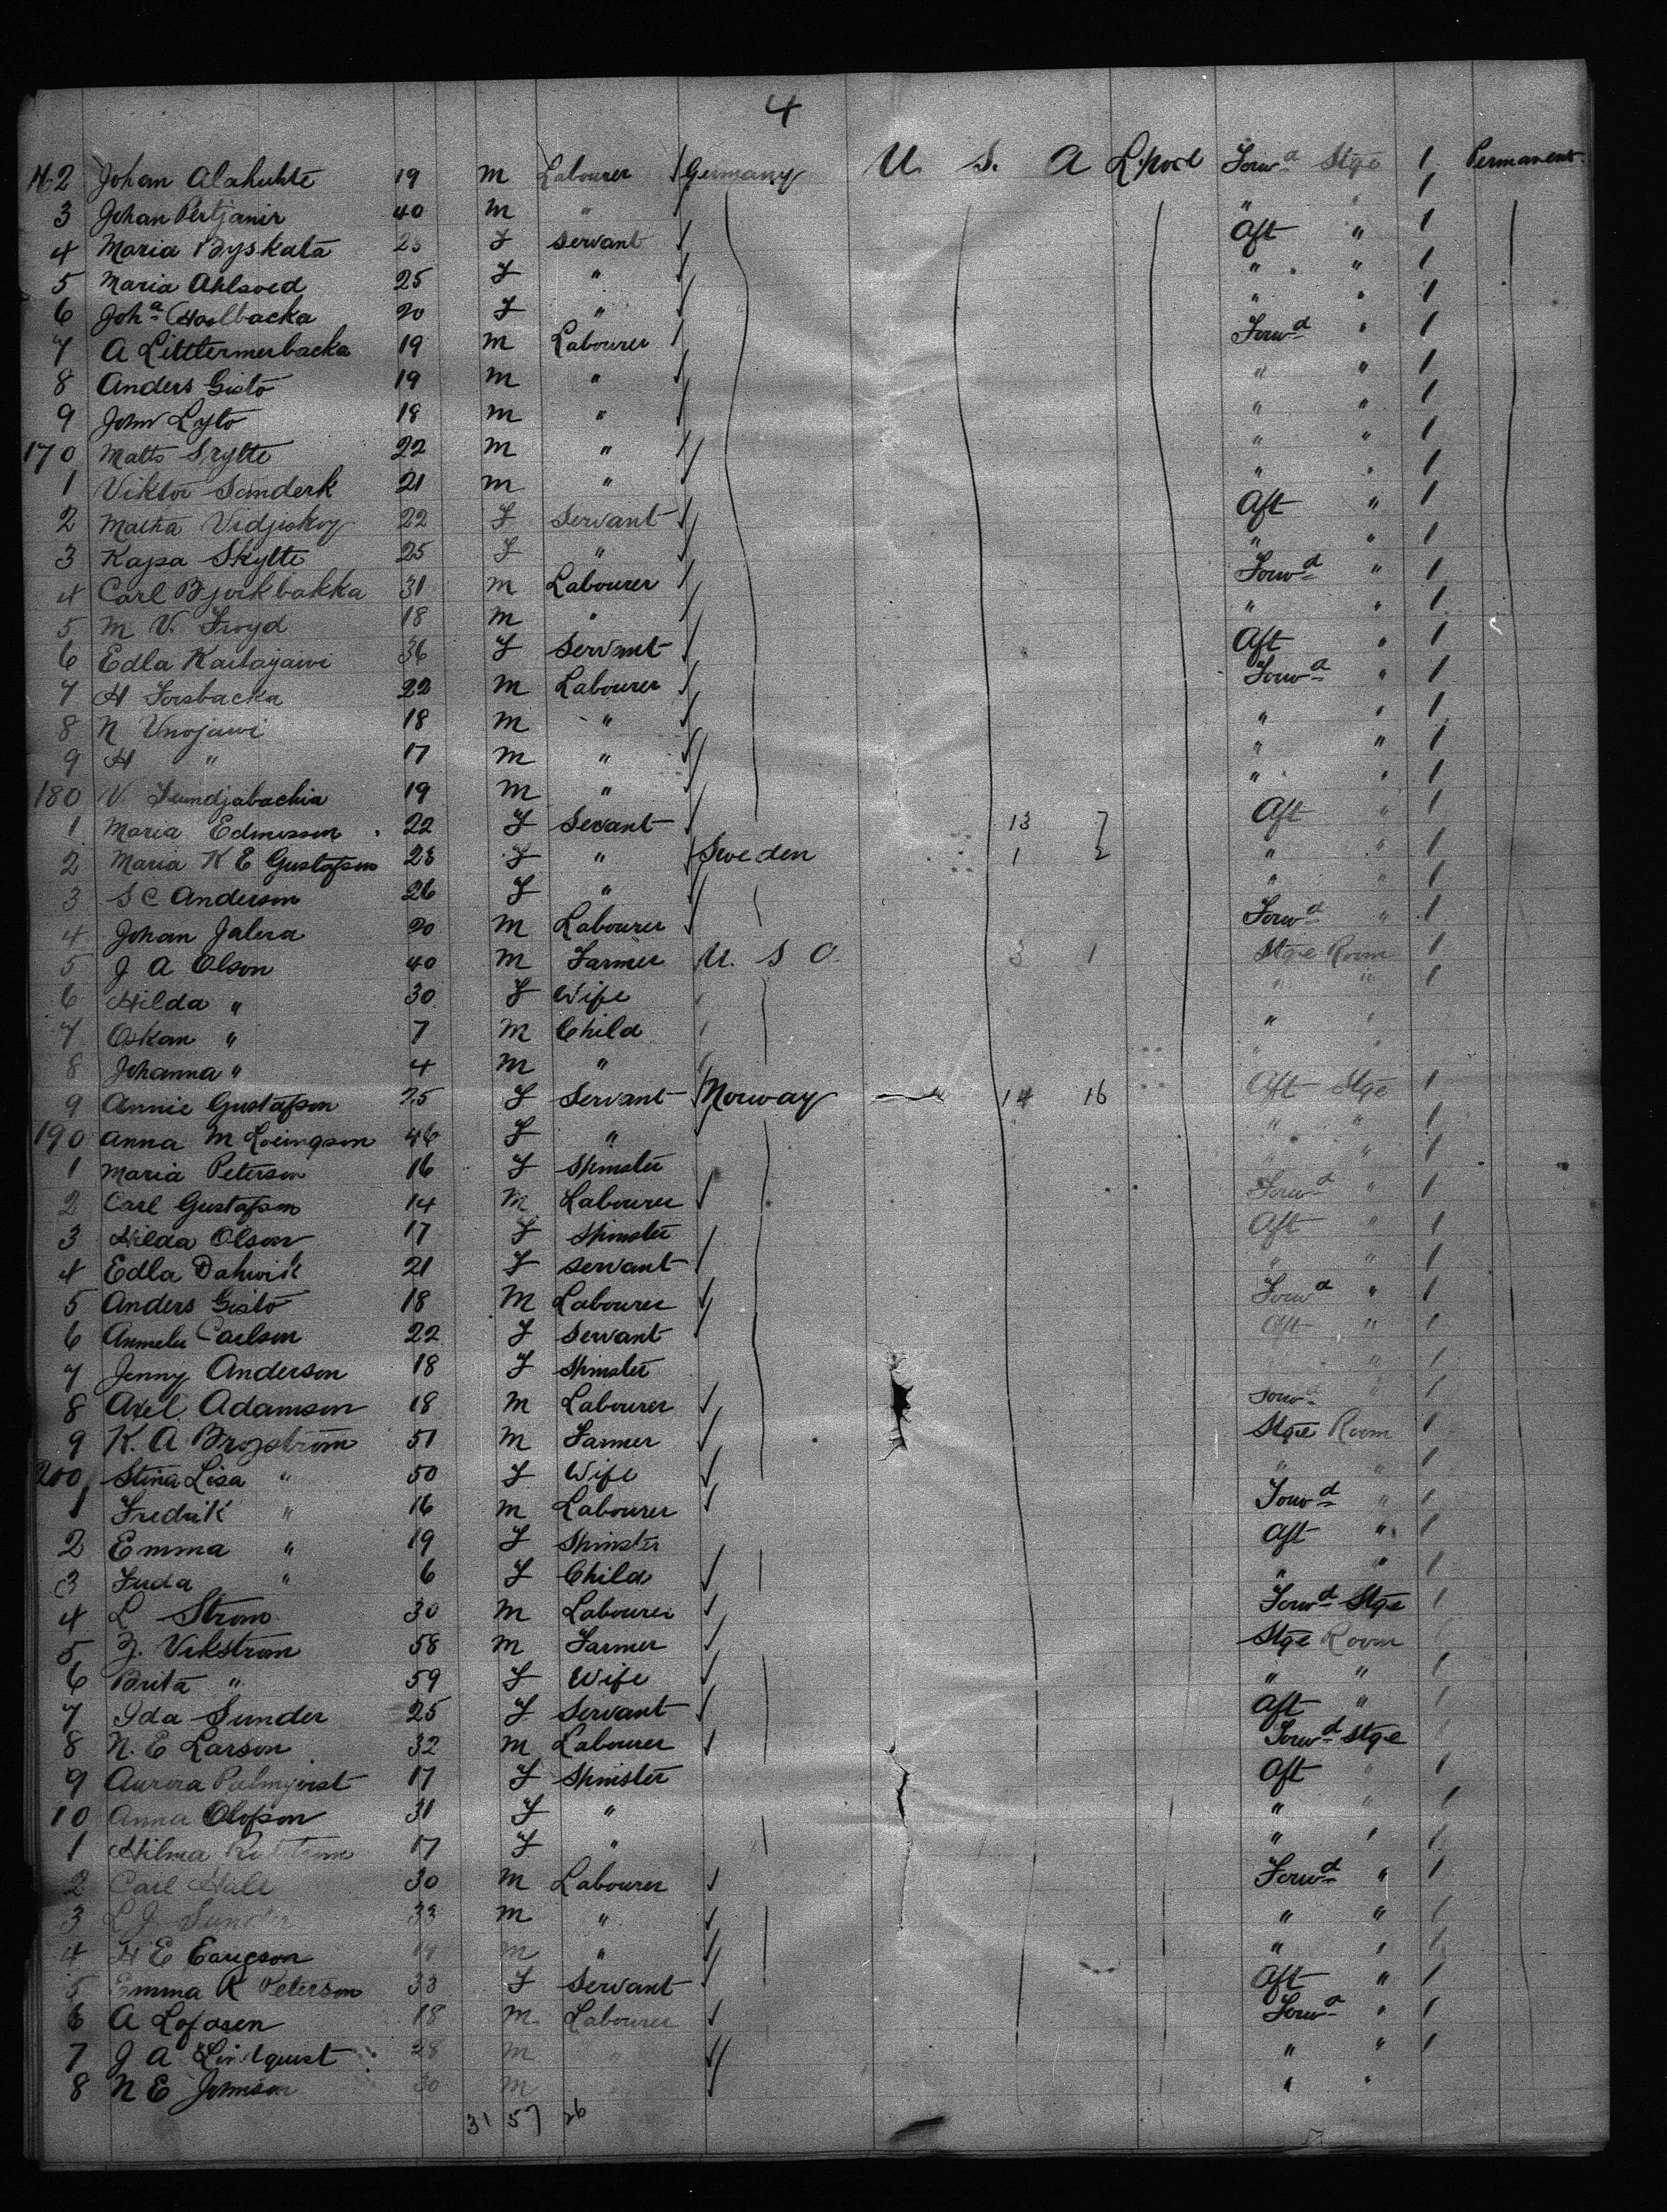 4
162 Johan Alahuhte 19 m Labourer Germany U. S. A L'pool Forwd Stge 1 Permanent
3 Johan Pertjanir 40 m " " " 1
4 Maria Byskata 23 F Servant Aft " 1
5 Maria Ahlsved 25 F " " " 1
6 Joha 20 F " " " 1
7 A Littlermerbacka 19 m Labourer Forwd " 1
8 Anders Gisto 19 m " " " 1
9 John Lyto 18 m " " " 1
170 Matts Srytte 22 m " " " 1
1 Viktor Sanderk 21 m " " " 1
2 Vidjeskog 22 F Servant Aft " 1
3 Kajsa Skytte 25 F " " " 1
4 Carl Bjorkbakka 31 m Labourer Forwd " 1
5 m V. Froyd 18 m " " " 1
6 Edla Kaitajawi 36 F Servant Aft " 1
7 H Forsbacka 22 m Labourer Forwd " 1
8 N Unojawi 18 m " " " 1
9 H " 17 m " " " 1
180 V. Sundjabachia 19 m " " " 1
1 Maria Edmusson 22 F Sevant 13 7 Aft " 1
2 Maria K E Gustafson 23 F " Sweden 1 2 " " 1
3 S C Anderson 26 F " " " 1
4 Johan Jalera 20 m Labourer Forwd " 1
5 J A Olson 40 m Farmer U. S A 3 1 Stge Room 1
6 Hilda " 30 F Wife " " 1
7 Oskan " 7 m Child " "
8 Johanna " 4 m " " "
9 Annie Gustafson 25 F Servant Norway 14 16 Aft Stge 1
190 Anna M Loeingson 46 F " " " 1
1 Maria Peterson 16 F Spinster " " 1
2 Carl Gustafson 14 m Labourer Forwd " 1
3 Hilda Olson 17 F Spinster Aft " 1
4 Edla Dahwik 21 F Servant " " 1
5 Anders Gisto 18 m Labourer Forwd " 1
6 Carlson 22 F Servant Aft " 1
7 Jenny Anderson 18 F Spinster " 1
8 Axel Adamson 18 m Labourer Forwd " 1
9 K. A Brogstrom 51 m Farmer Stge Room 1
200 Stina Lisa " 50 F Wife " " 1
1 Fredrik " 16 m Labourer Forwd " 1
2 Emma " 19 F Spinster Aft " 1
3 Fuda " 6 F Child " " 1
4 L Strom 30 m Labourer Forwd Stge 1
5 Z. Vikstrom 58 m Farmer Stge Room 1
6 Brita " 59 F Wife " " 1
7 Ida Sunder 25 F Servant Aft " 1
8 N. E Larson 32 m Labourer Forwd Stge 1
9 Aurora Palmqvist 17 F Spinster Aft " 1
10 Anna Olofson 31 F " " " 1
1 Hilma 17 F " " " 1
2 Carl Hall 30 m Labourer Forwd " 1
3 L J 33 m " " " 1
4 H E Earicson 19 m " " " 1
5 Emma K Peterson 33 F Servant Aft " 1
6 A Lofosen 18 m Labourer Forwd " 1
7 J A Lindquist 28 m " " " 1
8 N E Johnson 30 m " "
31 57 26